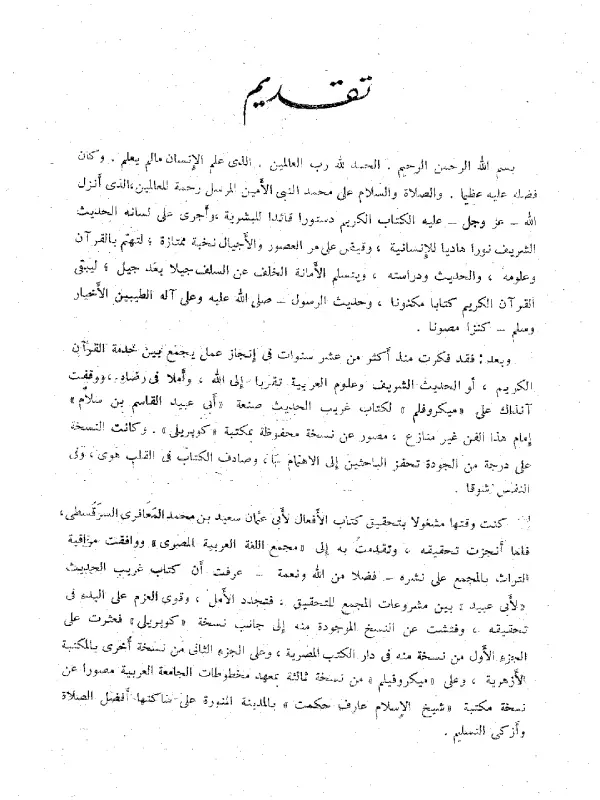 تقديم
بسم الله الرحمن الرحيم . الحمد لله رب العالمين . الذى علم الإنسان مالم يعلم . وكان
فضله عليه عظيما . والصلاة والسلام على محمد النبى الأمين المرسل رحمة للعالمين ،الذى أنزل
الله – عز وجل – عليه الكتاب الكريم دستورا قائدا للبشرية ،وأجرى على لسانه الحديث
الشريف نورا هاديا للإنسانية ، وقيض على مر العصور والأجيال نخبة ممتازة ؛ لتهتم بالقرآن
وعلومه ، والحديث ودراسته ، ويتسلم الأمانة الخلف عن السلف جيلا بعد جيل ؛ ليبقى
القرآن الكريم كتابا مكنونا ، وحديث الرسول – صلى الله عليه وعلى آله الطيبين الأخيار
وسلم – كنزا مصونا .
وبعد : فقد فكرت منذ أكثر من عشر سنوات فى إنجاز عمل يجمع بين خدمة القرآن
الكريم ، أو الحديث الشريف وعلوم العربية تقربا إلى الله ، وأملا فى رضاه ،ووقفت
آنذاك على » ميكروفلم « لكتاب غريب الحديث صنعة »أبى عبيد القاسم بن سلام«
إمام هذا الفن غير منازع ، مصور عن نسخة محفوظة بمكتبة »كوبريلى« . وكانت النسخة
على درجة من الجودة تحفز الباحثين إلى الاهتمام بها ، وصادف الكتاب فى القلب هوى ، وفى
النفس شوقا .
كنت وقتها مشغولا بتحقيق كتاب الأفعال لأبى عثمان سعيد بن محمد المعافرى السرقسطى،
فلما أنجزت تحقيقه ، وتقدمت به إلى »مجمع اللغة العربية المصرى« ووافقت مراقبة
التراث بالمجمع على نشره – فضلا من الله ونعمة – عرفت أن كتاب غريب الحديث
»لأبى عبيد « بين مشروعات المجمع للتحقيق ، فتجدد الأمل ، وقوى العزم على البدء فى
تحقيقه ، وفتشت عن النسخ الموجودة منه إلى جانب نسخة »كوبريلى« فعثرت على
الجزء الأول من نسخة منه فى دار الكتب المصرية ، وعلى الجزء الثانى من نسخة أخرى بالمكتبة
الأزهرية ، وعلى »ميكروفيلم « من نسخة ثالثة بمعهد مخطوطات الجامعة العربية مصورا عن
نسخة مكتبة »شيخ الإسلام عارف حكمت « بالمدينة المنورة على ساكنها أفضل الصلاة
وأزكى التسليم .